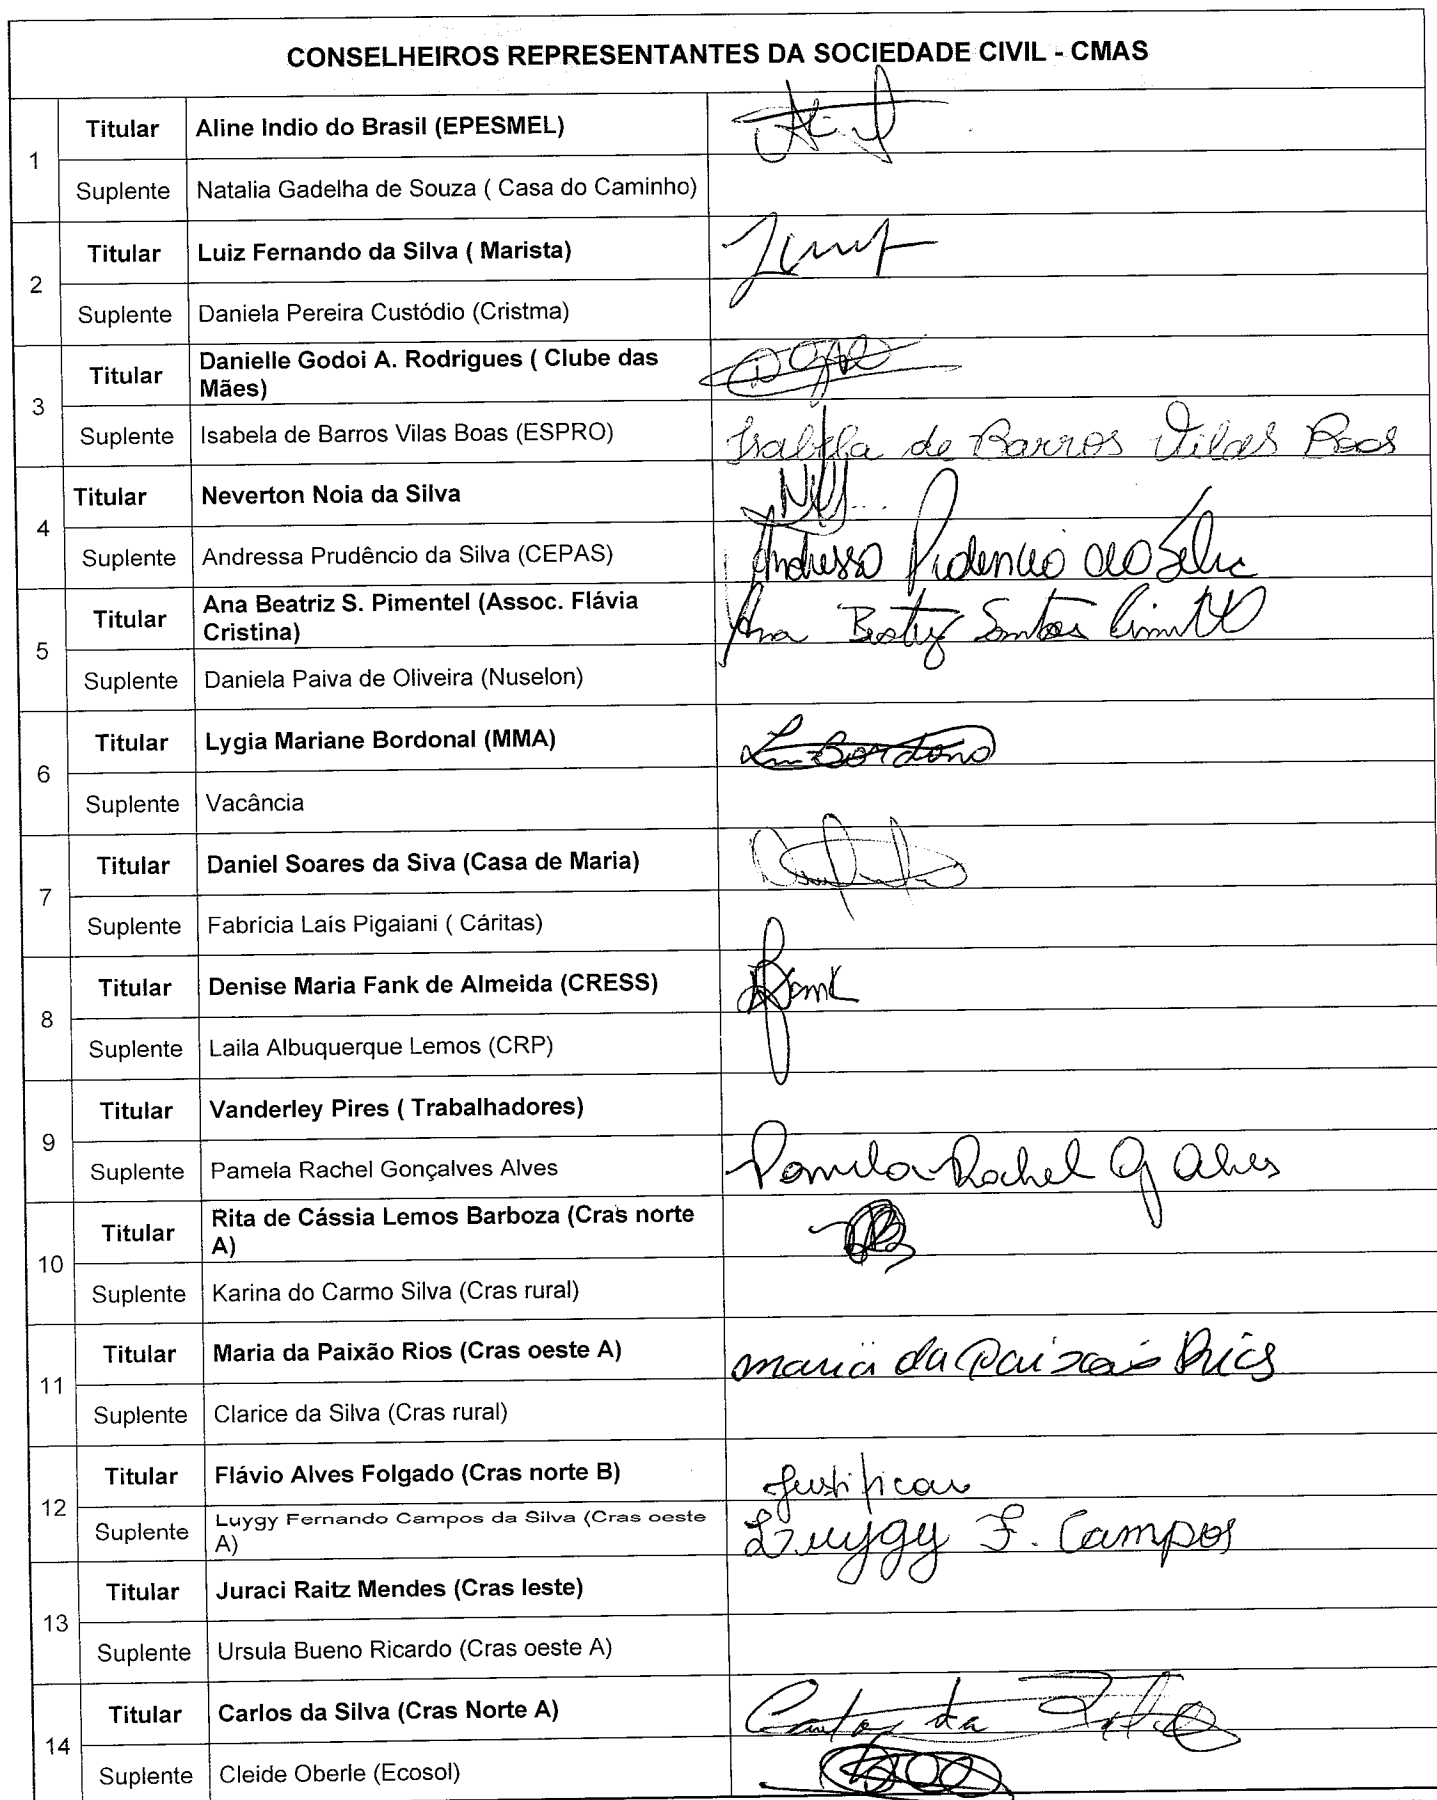 CONSELHEIROS REPRESENTANTES DA SOCIEDADE CIVIL - CMAS
1
Titular Aline Indio do Brasil (EPESMEL)
Suplente Natalia Gadelha de Souza ( Casa do Caminho)
2
Titular Luiz Fernando da Silva ( Marista)
Suplente Daniela Pereira Custódio (Cristma)
3
Titular Danielle Godoi A. Rodrigues ( Clube das
Mães)
Suplente Isabela de Barros Vilas Boas (ESPRO) Isabela de Barros Vilas Boas
4
Titular Neverton Noia da Silva
Suplente Andressa Prudêncio da Silva (CEPAS) Andressa Prudencio da Silva
5
Titular Ana Beatriz S. Pimentel (Assoc. Flávia
Cristina) Ana Beatriz Santos
Suplente Daniela Paiva de Oliveira (Nuselon)
6
Titular Lygia Mariane Bordonal (MMA)
Suplente Vacância
7
Titular Daniel Soares da Siva (Casa de Maria)
Suplente Fabrícia Laís Pigaiani ( Cáritas)
8
Titular Denise Maria Fank de Almeida (CRESS) Fank
Suplente Laila Albuquerque Lemos (CRP)
9
Titular Vanderley Pires ( Trabalhadores)
Suplente Pamela Rachel Gonçalves Alves Pamela Rachel G Alves
10
Titular Rita de Cássia Lemos Barboza (Cras norte
A)
Suplente Karina do Carmo Silva (Cras rural)
11
Titular Maria da Paixão Rios (Cras oeste A) maria da Paixão Rios
Suplente Clarice da Silva (Cras rural)
12
Titular Flávio Alves Folgado (Cras norte B) Justificou
Suplente Luygy Fernando Campos da Silva (Cras oeste
A) Luygy F. Campos
13
Titular Juraci Raitz Mendes (Cras leste)
Suplente Ursula Bueno Ricardo (Cras oeste A)
14
Titular Carlos da Silva (Cras Norte A) Carlos da Silva
Suplente Cleide Oberle (Ecosol)